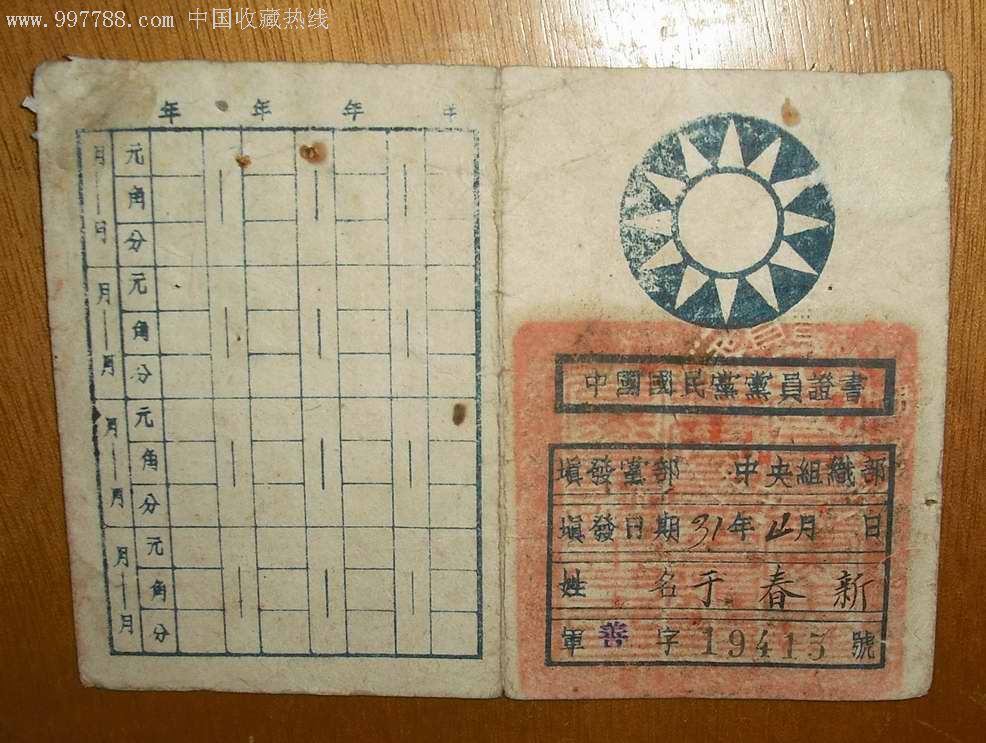 www.997788.com 中国收藏热线
年 年 年
月—月 元 角 分
月—月 元 角 分
月—月 元 角 分
月—月 元 角 分
中國國民黨黨員證書
填發黨部 中央組織部
填發日期 31年 月 日
姓名 于春新
軍善字 19415 號